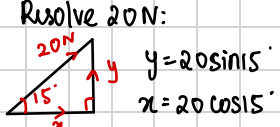 Resolve 20N:
20N
y
y=20sin15°
15°
x=20cos15°
x